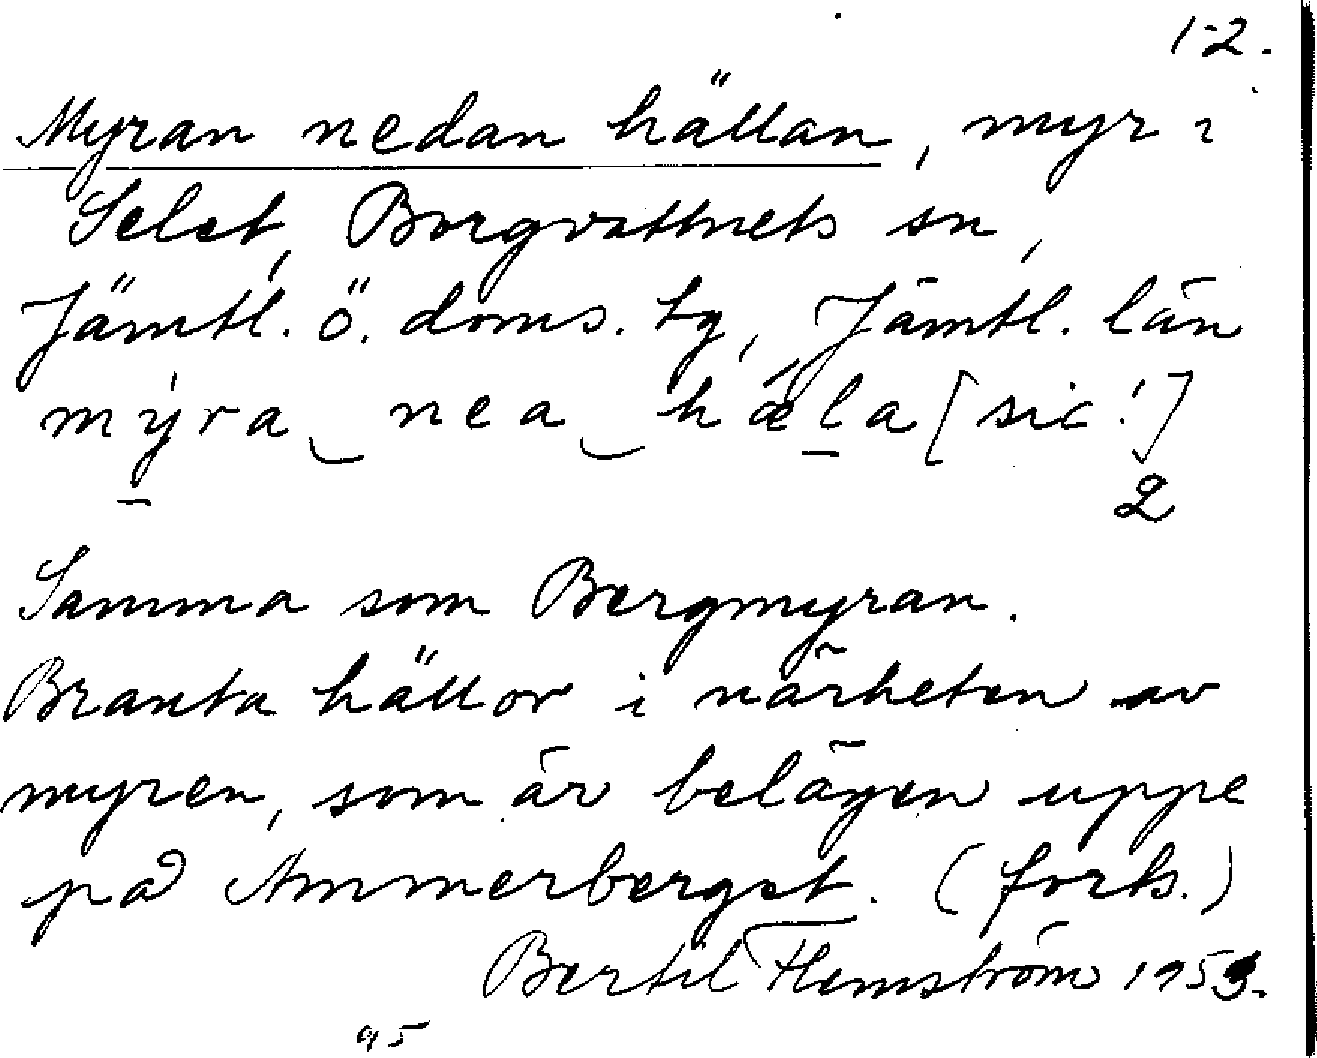 1-2.
Myran nedan hällan, myr i
Selet, Borgvattnets sn,
Jämtl. ö. doms. tg, Jämtl. län
mý̱ra‿nea‿hǽḻa [sic!]
2
Samma som Bergmyran.
Branta hällor i närheten av
myren, som är belägen uppe
på Ammerberget. (forts.)
Bertil Flemström 1953.
95